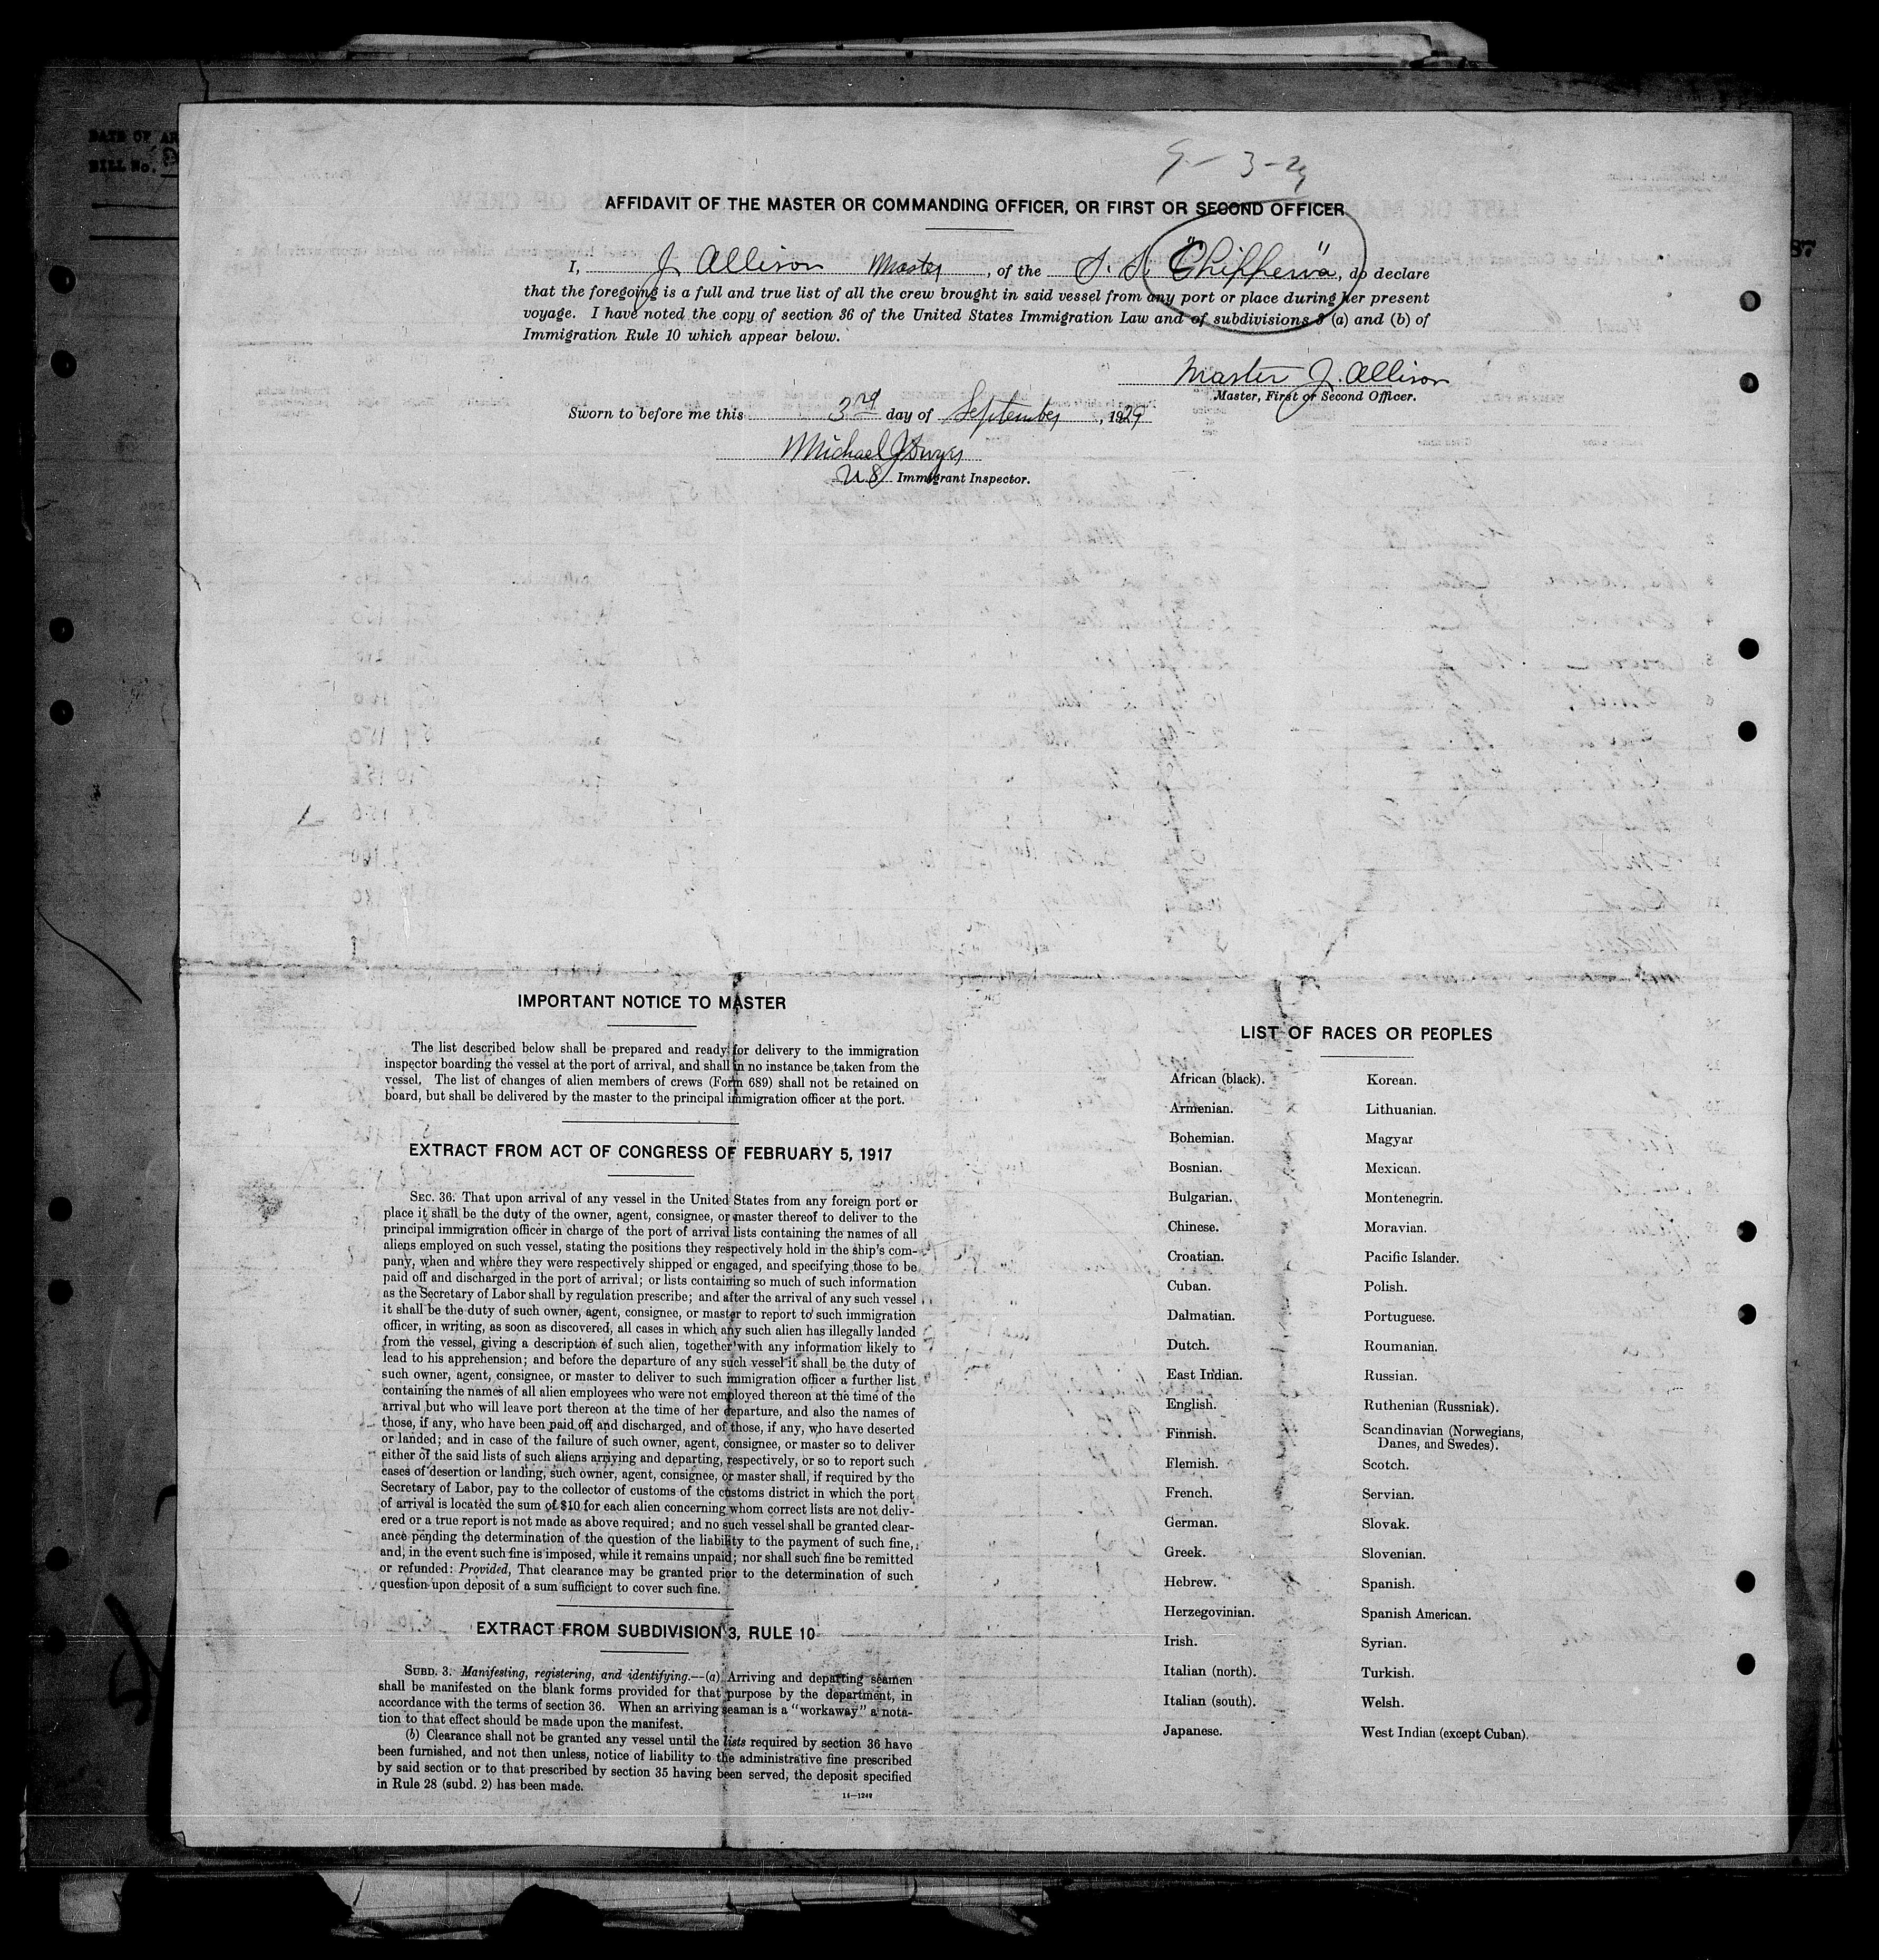 DATE OF AR
BILL No.
9-3-29
AFFIDAVIT OF THE MASTER OR COMMANDING OFFICER, OR FIRST OR SECOND OFFICER
I, J. Allison Master, of the S. S. "Chippewa", do declare
that the foregoing is a full and true list of all the crew brought in said vessel from any port or place during her present
voyage. I have noted the copy of section 36 of the United States Immigration Law and of subdivisions 3 (a) and (b) of
Immigration Rule 10 which appear below.
Master J. Allison
Master, First or Second Officer.
Sworn to before me this 3rd day of September, 1929
Michael J
U.S. Immigrant Inspector.
IMPORTANT NOTICE TO MASTER
The list described below shall be prepared and ready for delivery to the immigration
inspector boarding the vessel at the port of arrival, and shall in no instance be taken from the
vessel. The list of changes of alien members of crews (Form 689) shall not be retained on
board, but shall be delivered by the master to the principal immigration officer at the port.
EXTRACT FROM ACT OF CONGRESS OF FEBRUARY 5, 1917
SEC. 36. That upon arrival of any vessel in the United States from any foreign port or
place it shall be the duty of the owner, agent, consignee, or master thereof to deliver to the
principal immigration officer in charge of the port of arrival lists containing the names of all
aliens employed on such vessel, stating the positions they respectively hold in the ship's com-
pany, when and where they were respectively shipped or engaged, and specifying those to be
paid off and discharged in the port of arrival; or lists containing so much of such information
as the Secretary of Labor shall by regulation prescribe; and after the arrival of any such vessel
it shall be the duty of such owner, agent, consignee, or master to report to such immigration
officer, in writing, as soon as discovered, all cases in which any such alien has illegally landed
from the vessel, giving a description of such alien, together with any information likely to
lead to his apprehension; and before the departure of any such vessel it shall be the duty of
such owner, agent, consignee, or master to deliver to such immigration officer a further list
containing the names of all alien employees who were not employed thereon at the time of the
arrival but who will leave port thereon at the time of her departure, and also the names of
those, if any, who have been paid off and discharged, and of those, if any, who have deserted
or landed; and in case of the failure of such owner, agent, consignee, or master so to deliver
either of the said lists of such aliens arriving and departing, respectively, or so to report such
cases of desertion or landing, such owner, agent, consignee, or master shall, if required by the
Secretary of Labor, pay to the collector of customs of the customs district in which the port
of arrival is located the sum of $10 for each alien concerning whom correct lists are not deliv-
ered or a true report is not made as above required; and no such vessel shall be granted clear-
ance pending the determination of the question of the liability to the payment of such fine,
and, in the event such fine is imposed, while it remains unpaid; nor shall such fine be remitted
or refunded: Provided, That clearance may be granted prior to the determination of such
question upon deposit of a sum sufficient to cover such fine.
EXTRACT FROM SUBDIVISION 3, RULE 10
SUBD. 3. Manifesting, registering, and identifying.—(a) Arriving and departing seamen
shall be manifested on the blank forms provided for that purpose by the department, in
accordance with the terms of section 36. When an arriving seaman is a "workaway" a nota-
tion to that effect should be made upon the manifest.
(b) Clearance shall not be granted any vessel until the lists required by section 36 have
been furnished, and not then unless, notice of liability to the administrative fine prescribed
by said section or to that prescribed by section 35 having been served, the deposit specified
in Rule 28 (subd. 2) has been made.
14—1249
LIST OF RACES OR PEOPLES
African (black).
Armenian.
Bohemian.
Bosnian.
Bulgarian.
Chinese.
Croatian.
Cuban.
Dalmatian.
Dutch.
East Indian.
English.
Finnish.
Flemish.
French.
German.
Greek.
Hebrew.
Herzegovinian.
Irish.
Italian (north).
Italian (south).
Japanese.
Korean.
Lithuanian.
Magyar
Mexican.
Montenegrin.
Moravian.
Pacific Islander.
Polish.
Portuguese.
Roumanian.
Russian.
Ruthenian (Russniak).
Scandinavian (Norwegians,
Danes, and Swedes).
Scotch.
Servian.
Slovak.
Slovenian.
Spanish.
Spanish American.
Syrian.
Turkish.
Welsh.
West Indian (except Cuban).